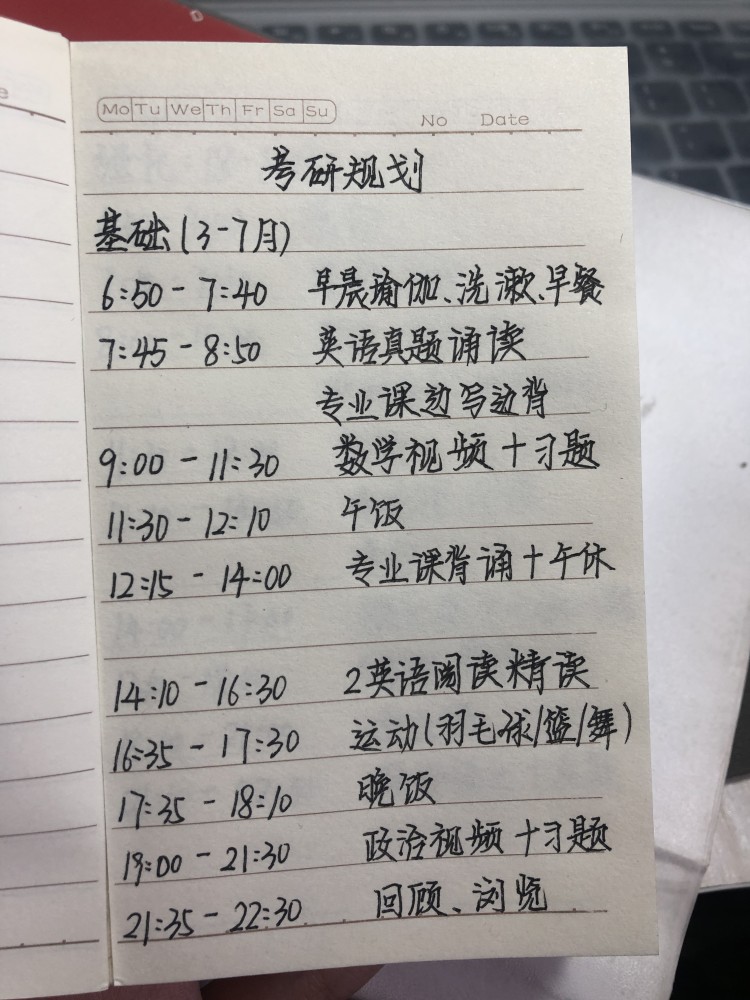 e
Mo Tu We Th Fr Sa Su
No Date
考研规划
基础(3-7月)
6:50-7:40 早晨瑜伽、洗漱、早餐
7:45-8:50 英语真题诵读
专业课边写边背
9:00-11:30 数学视频+习题
11:30-12:10 午饭
12:15-14:00 专业课背诵+午休
14:10-16:30 2英语阅读精读
16:35-17:30 运动(羽毛球/篮/舞)
17:35-18:10 晚饭
19:00-21:30 政治视频+习题
21:35-22:30 回顾、浏览